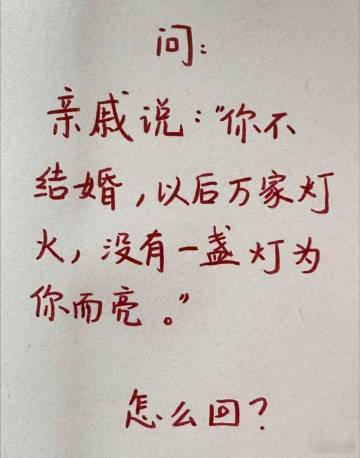 问：
亲戚说："你不
结婚，以后万家灯
火，没有一盏灯为
你而亮。"
怎么回？